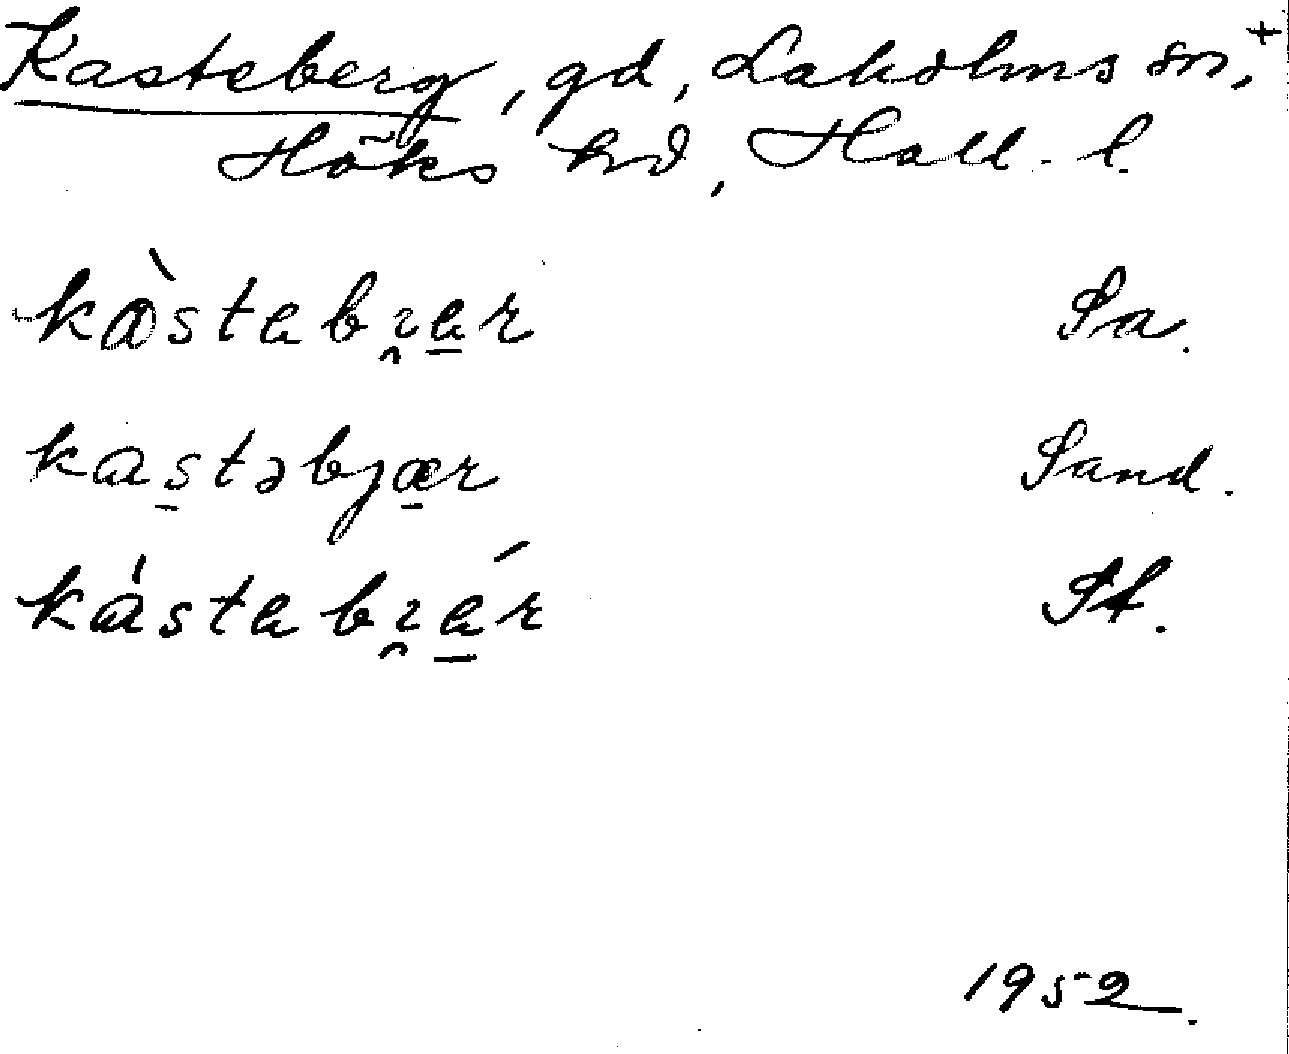 Kasteberg, gd, Laholms sn,+
Höks hd, Hall. l.
kàstabı̯a̲r Sa.
kas̲təbjæ̲r Sand.
kástabı̯a̲ŕ St.
1952.